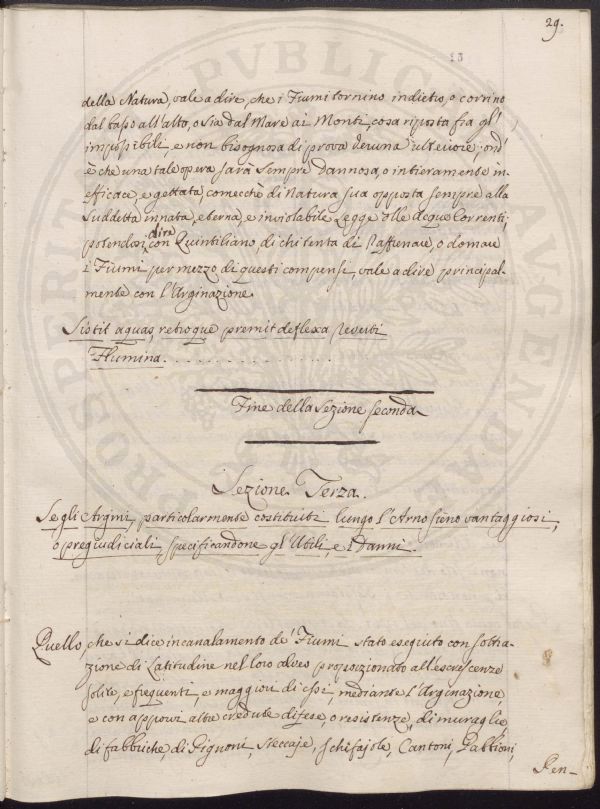 29.
13
della Natura, vale a dire, che i Fiumi tornino indietro, o corrino
dal basso all'alto, o sia dal Mare ai Monti, cosa riposta fra gl'
impossibili, e non bisognosa di prova veruna ulteriore; ond'
è che una tale opera sarà sempre dannosa, o intieramente in-
efficace, e gettata, comecchè di Natura sua opposta sempre alla
suddetta innata, eterna, e inviolabile Legge delle Acque Correnti,
potendosi dire con Quintiliano, di chi tenta di Raffrenare, o domare
i Fiumi per mezzo di questi compensi, vale a dire principal-
mente con l'Arginazione
Sistit aquas, retroque premit deflexa reverti
Flumina. . . . . . . . . . . . . . . . .
Fine della Sezione seconda
Sezione Terza.
Se gli Argini, particolarmente costituiti lungo l'Arno sieno vantaggiosi,
o pregiudiciali, specificandone gl'Utili, e i Danni.
Quello, che si dice incanalamento de' Fiumi stato eseguito con sottra-
zione di Latitudine nel loro alveo proporzionato all'escrescenze
solite, e frequenti, e maggiori di essi, mediante l'Arginazione,
e con apporvi altre credute difese o resistenze, di muraglie,
di fabbriche, di Pignoni, Steccaje, Schifajole, Cantoni, Gabbioni,
Pen-
PROSPERITATI PVBLICAE AVGENDAE